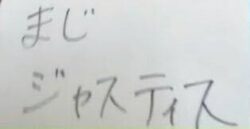 まじ
ジャスティス